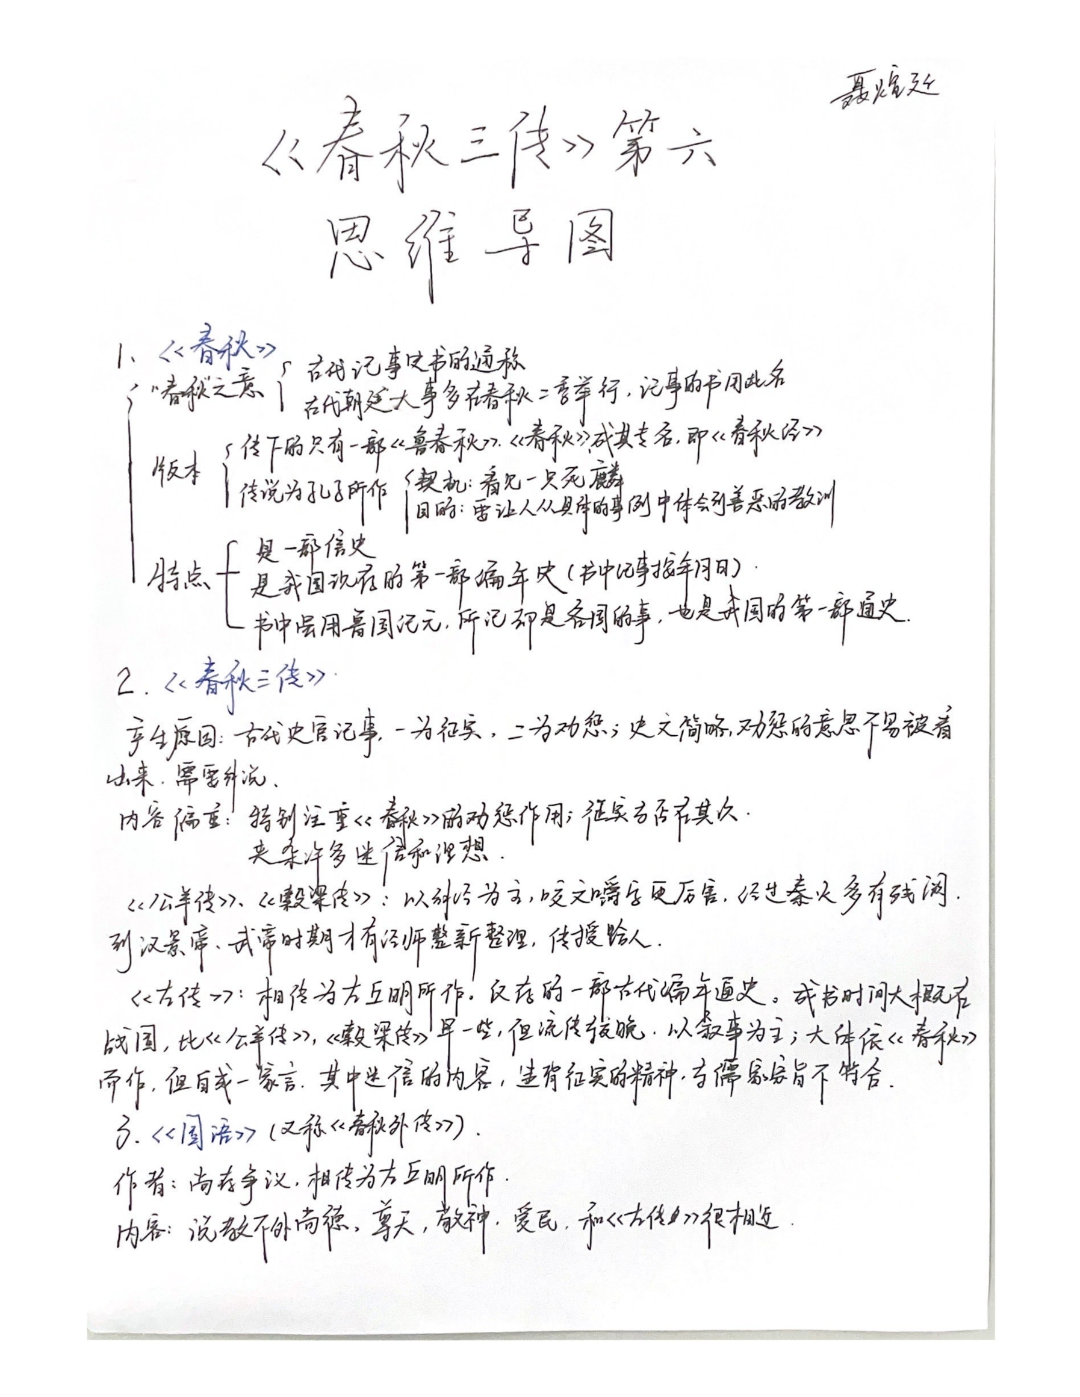 聂煊廷
《春秋三传》第六
思维导图
1、《春秋》
"春秋"之意
古代记事史书的通称
古代朝廷大事多在春秋二季举行，记事的书用此名
版本
传下的只有一部《鲁春秋》，《春秋》成其专名，即《春秋经》
传说为孔子所作
契机：看见一只死麟
目的：要让人从具体的事例中体会到善恶的教训
特点
是一部信史
是我国现存的第一部编年史（书中记事按年月日）.
书中虽用鲁国记元，所记却是各国的事，也是我国的第一部通史.
2.《春秋三传》
产生原因：古代史官记事，一为征实，二为劝惩；史文简略，劝惩的意思不易被看
出来，需要解说、
内容偏重：特别注重《春秋》的劝惩作用；征实与否在其次.
夹杂许多迷信和理想.
《公羊传》、《榖梁传》：以解经为主，咬文嚼字更厉害，经过秦火多有残阙，
到汉景帝、武帝时期才有经师重新整理，传授给人.
《左传》：相传为左丘明所作，仅存的一部古代编年通史。成书时间大概在
战国，比《公羊传》，《榖梁传》早一些，但流传较晚. 以叙事为主；大体依《春秋》
而作，但自成一家言. 其中迷信的内容，生有征实的精神，与儒家宗旨不符合.
3.《国语》（又称《春秋外传》）.
作者：尚存争议，相传为左丘明所作.
内容：说教不外尚德，尊天，敬神，爱民，和《左传》很相近.